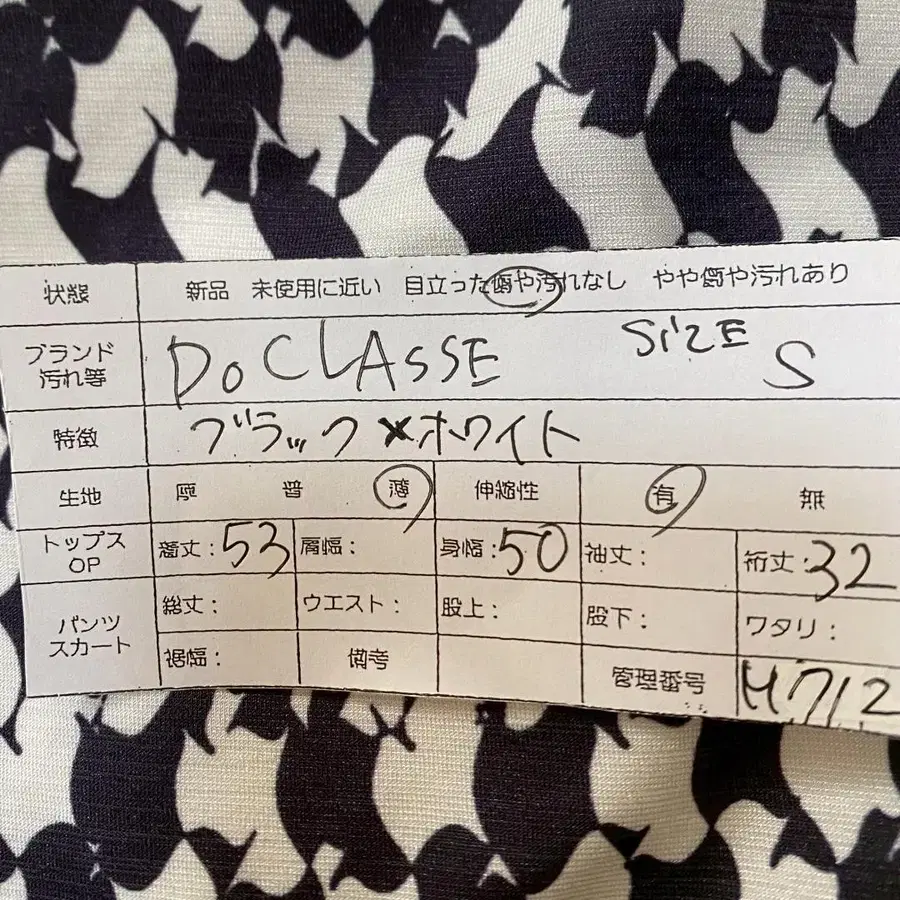 状態 新品 未使用に近い 目立った傷や汚れなし やや傷や汚れあり
ブランド
汚れ等
DoCLASSE SiZE S
特徴 ブラック×ホワイト
生地 厚 普 薄 伸縮性 有 無
トップス
OP
着丈:53 肩幅: 身幅:50 袖丈: 裄丈:32
パンツ
スカート
総丈: ウエスト: 股上: 股下: ワタリ:
裾幅: 備考 管理番号 H712